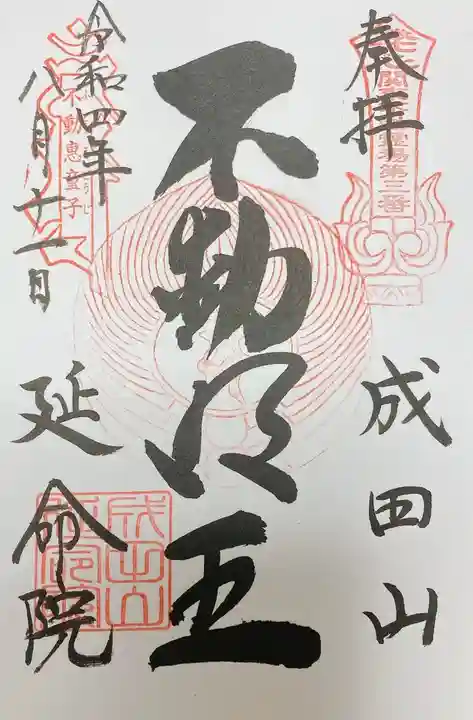 奉拝
成田山
不動明王
令和四年
八月十一日
延命院
霊場第三番
不動恵童子
成田山